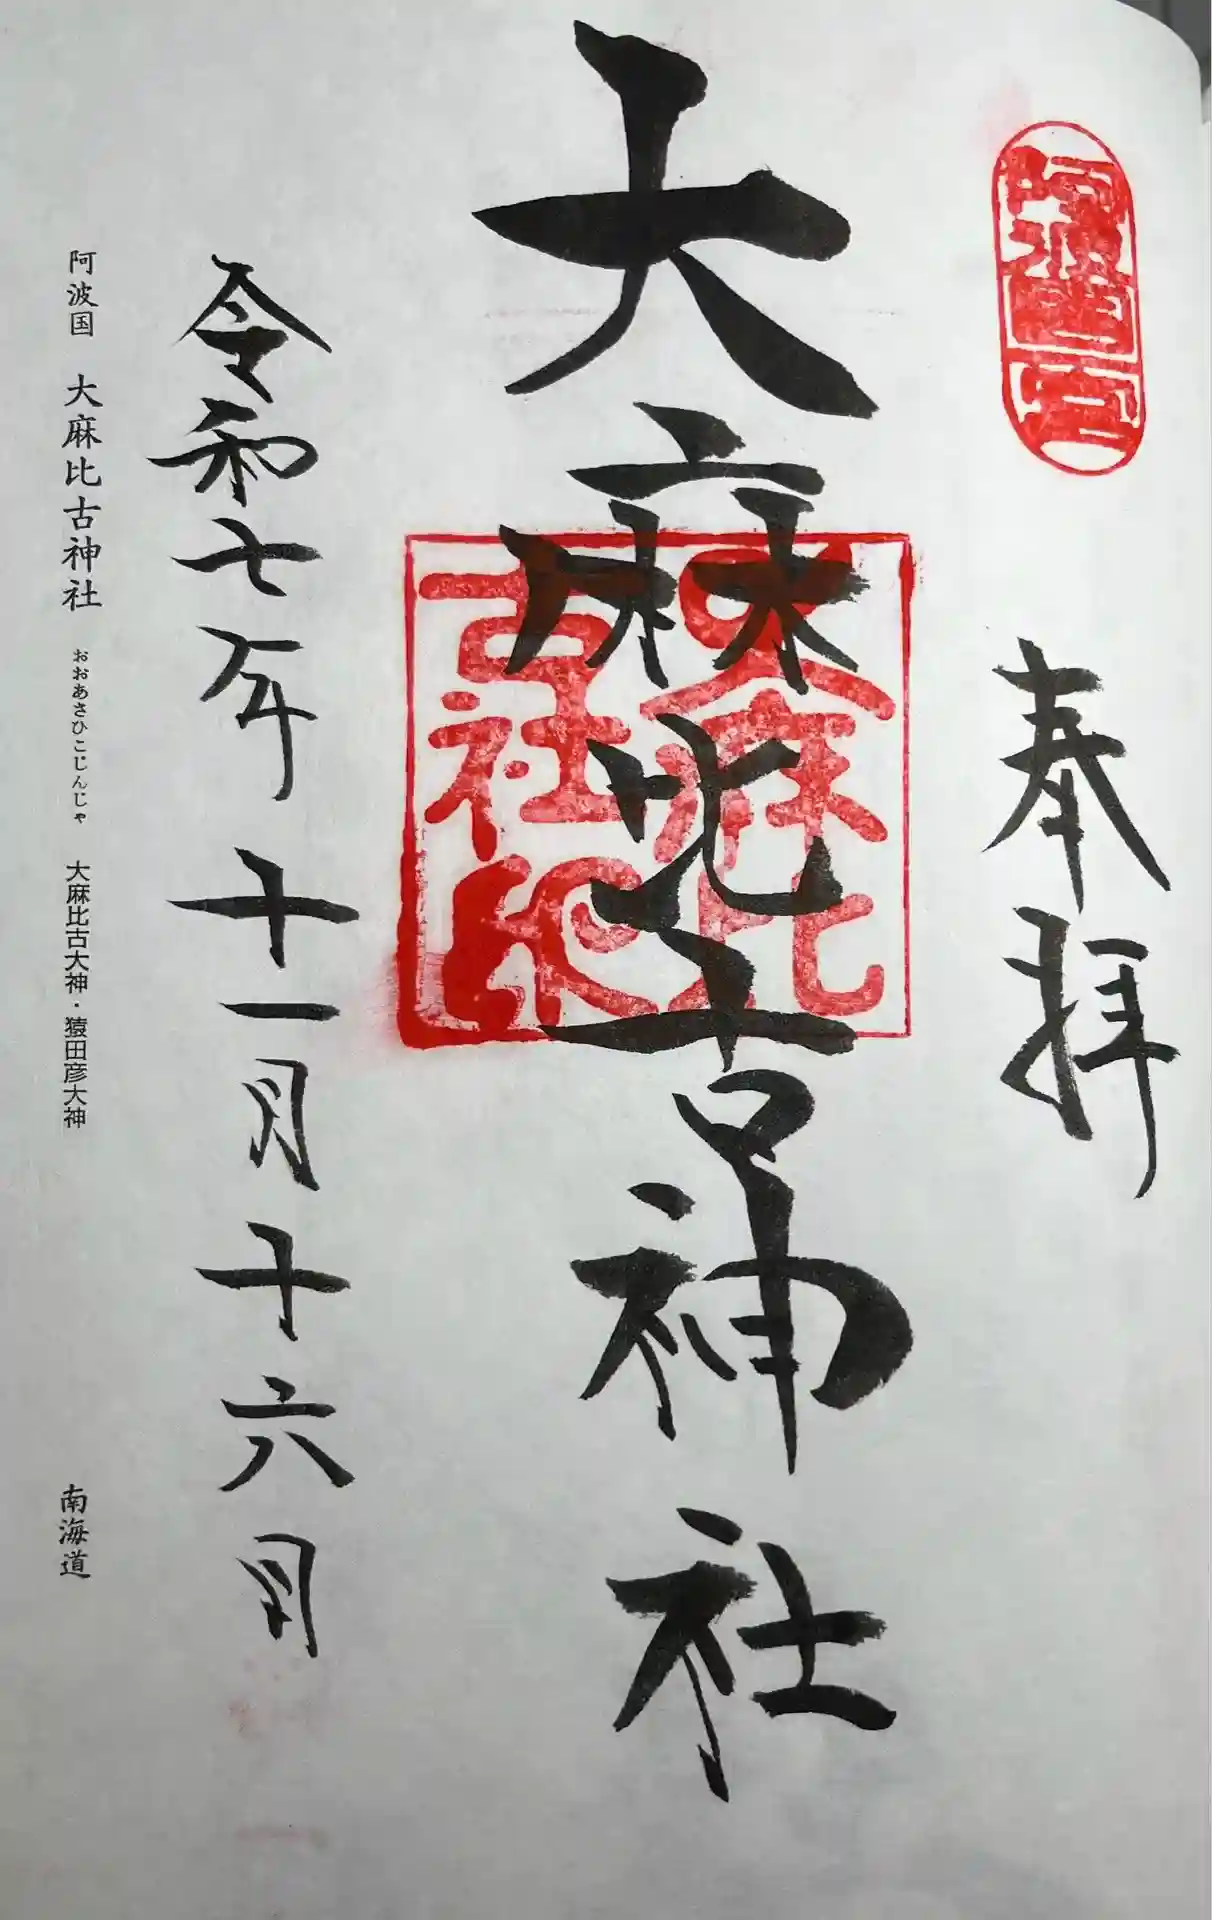 阿波國一宮
奉拝
大麻比古神社
大麻比
古社印
令和七年十一月十六日
阿波国 大麻比古神社 おおあさひこじんじゃ 大麻比古大神・猿田彦大神 南海道